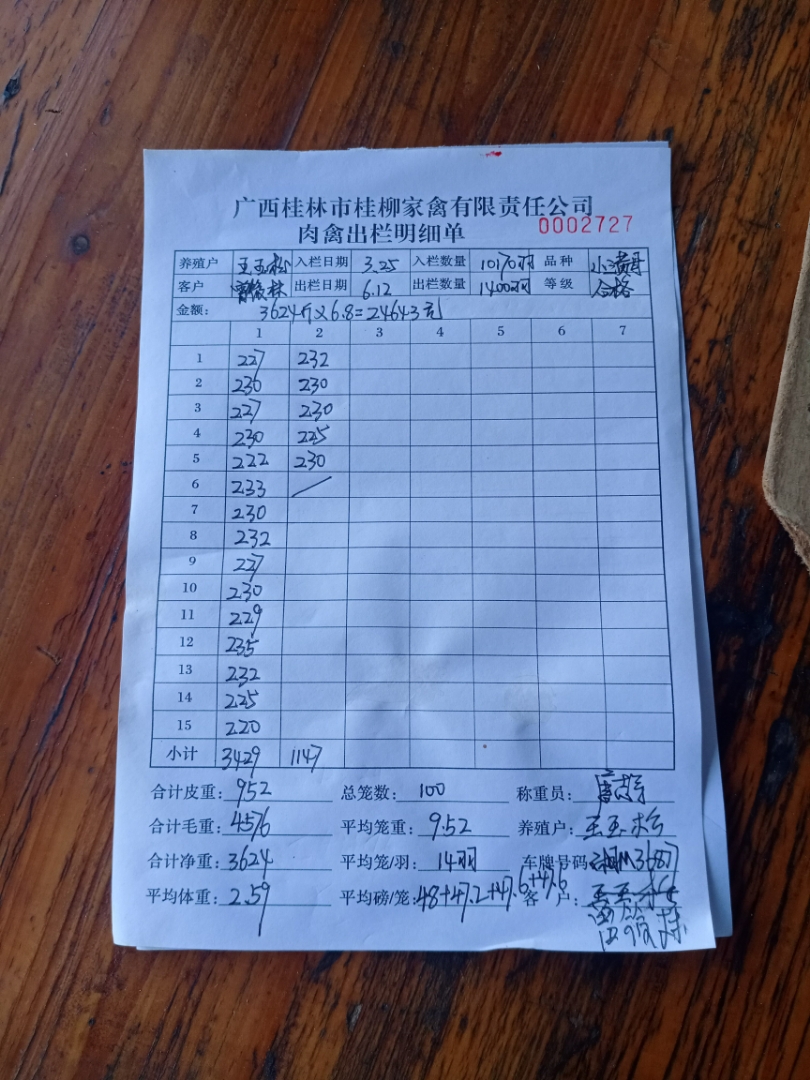 广西桂林市桂柳家禽有限责任公司
肉禽出栏明细单 0002727
养殖户 王玉松 入栏日期 3.25 入栏数量 10170羽 品种
客户 出栏日期 6.12 出栏数量 1400羽 等级 合格
金额: 3624斤×6.8=24643元
1 2 3 4 5 6 7
1 227 232
2 230 230
3 227 230
4 230 225
5 222 230
6 233 /
7 230
8 232
9 227
10 230
11 229
12 235
13 232
14 225
15 220
小计 3429 1147
合计皮重: 952 总笼数: 100 称重员:
合计毛重: 4576 平均笼重: 9.52 养殖户: 王玉松
合计净重: 3624 平均笼/羽: 14羽 车牌号码 湘M3687
平均体重: 2.59 平均磅/笼: 48+47.2+47.6+47.6 客 户: